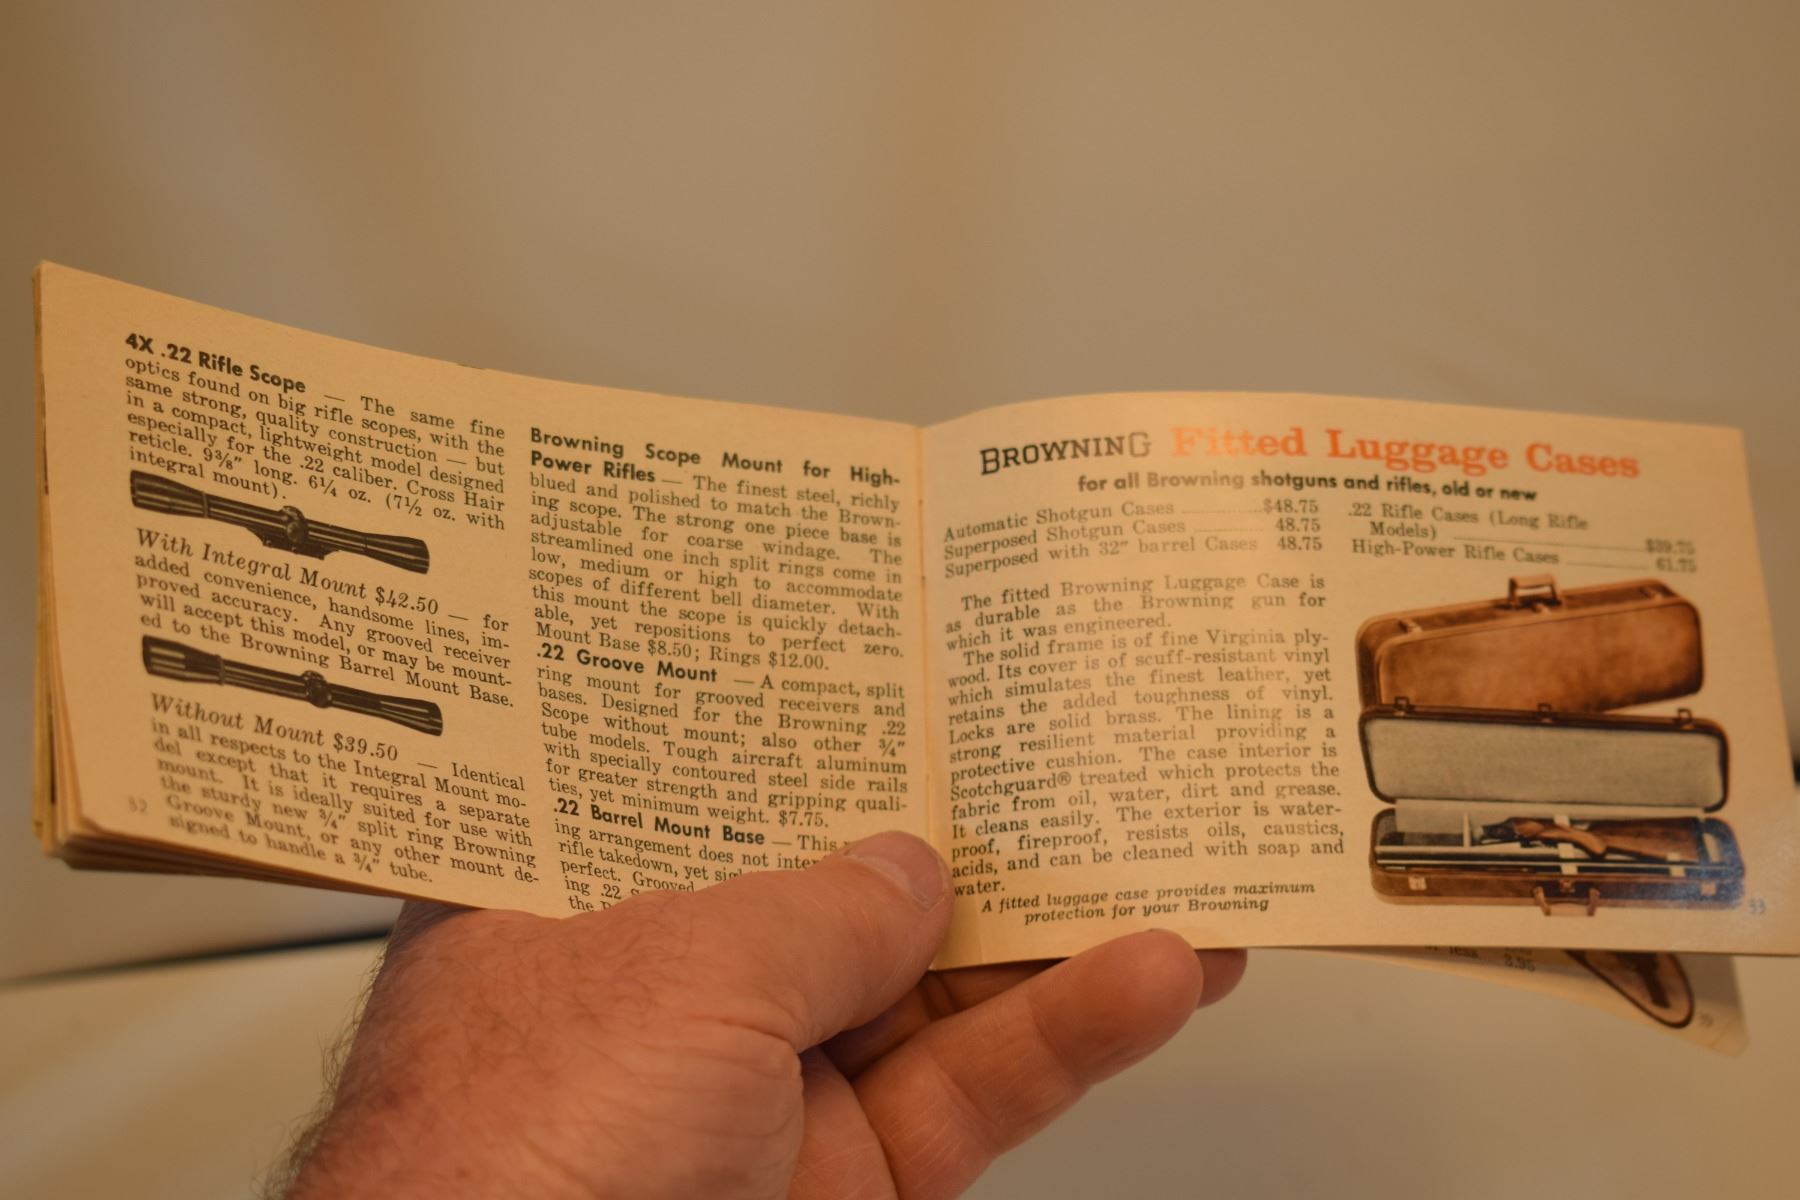 4X .22 Rifle Scope — The same fine
optics found on big rifle scopes, with the
same strong, quality construction — but
in a compact, lightweight model designed
especially for the .22 caliber. Cross Hair
reticle. 9⅜" long. 6¼ oz. (7½ oz. with
integral mount).
With Integral Mount $42.50 — for
added convenience, handsome lines, im-
proved accuracy. Any grooved receiver
will accept this model, or may be mount-
ed to the Browning Barrel Mount Base.
Without Mount $39.50 — Identical
in all respects to the Integral Mount mo-
del except that it requires a separate
mount. It is ideally suited for use with
the sturdy new ¾" split ring Browning
Groove Mount, or any other mount de-
signed to handle a ¾" tube.
32
Browning Scope Mount for High-
Power Rifles — The finest steel, richly
blued and polished to match the Brown-
ing scope. The strong one piece base is
adjustable for coarse windage. The
streamlined one inch split rings come in
low, medium or high to accommodate
scopes of different bell diameter. With
this mount the scope is quickly detach-
able, yet repositions to perfect zero.
Mount Base $8.50; Rings $12.00.
.22 Groove Mount — A compact, split
ring mount for grooved receivers and
bases. Designed for the Browning .22
Scope without mount; also other ¾"
tube models. Tough aircraft aluminum
with specially contoured steel side rails
for greater strength and gripping quali-
ties, yet minimum weight. $7.75.
.22 Barrel Mount Base — This
ing arrangement does not
rifle takedown, yet
perfect. Grooved
ing .22
the
BROWNING Fitted Luggage Cases
for all Browning shotguns and rifles, old or new
Automatic Shotgun Cases $48.75
Superposed Shotgun Cases 48.75
Superposed with 32" barrel Cases 48.75
.22 Rifle Cases (Long Rifle
Models) $39.75
High-Power Rifle Cases 61.75
The fitted Browning Luggage Case is
as durable as the Browning gun for
which it was engineered.
The solid frame is of fine Virginia ply-
wood. Its cover is of scuff-resistant vinyl
which simulates the finest leather, yet
retains the added toughness of vinyl.
Locks are solid brass. The lining is a
strong resilient material providing a
protective cushion. The case interior is
Scotchguard® treated which protects the
fabric from oil, water, dirt and grease.
It cleans easily. The exterior is water-
proof, fireproof, resists oils, caustics,
acids, and can be cleaned with soap and
water.
A fitted luggage case provides maximum
protection for your Browning
33
or less
3.95